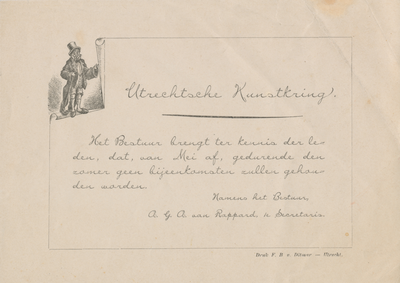 Utrechtsche Kunstkring.
Het Bestuur brengt ter kennis der le-
den, dat, van Mei af, gedurende den
zomer geen bijeenkomsten zullen gehou-
den worden.
Namens het Bestuur,
A. G. A. van Rappard, Secretaris.
Druk P. B. v. — Utrecht.